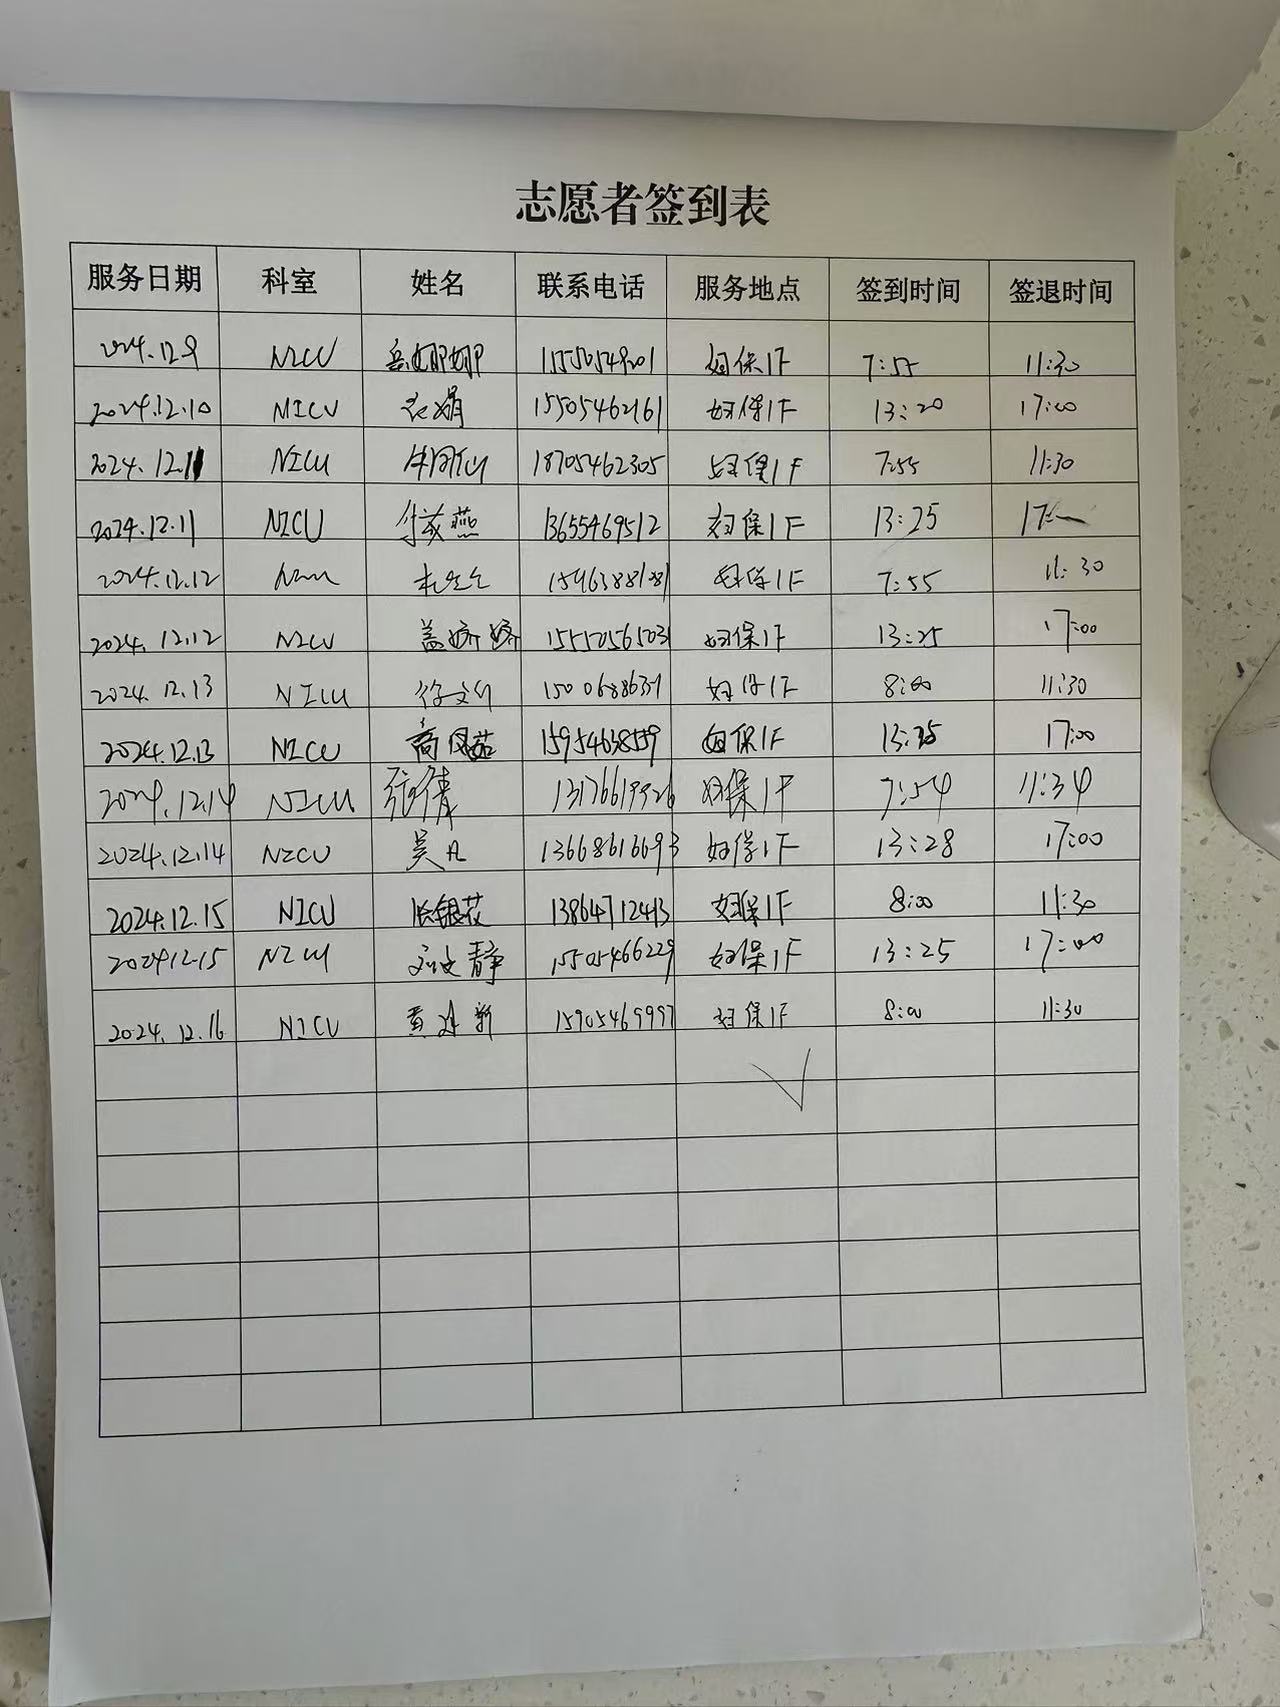 志愿者签到表
服务日期 科室 姓名 联系电话 服务地点 签到时间 签退时间
2024.12.9 NICU 岳娜娜 15550549201 妇保1F 7:55 11:30
2024.12.10 NICU 衣娟 15505462161 妇保1F 13:20 17:00
2024.12.11 NICU 18705462305 妇保1F 7:55 11:30
2024.12.11 NICU 燕 13655469512 妇保1F 13:25
2024.12.12 妇保1F 7:55 11:30
2024.12.12 NICU 盖娇娇 15550565031 妇保1F 13:25 17:00
2024.12.13 NICU 妇保1F 8:00 11:30
2024.12.13 NICU 商凤茹 15954638559 妇保1F 17:00
2024.12.14 NICU 张倩 妇保1F 7:54 11:34
2024.12.14 NICU 吴凡 13668616693 妇保1F 13:28 17:00
2024.12.15 NICU 张银花 13864712413 妇保1F 8:00 11:30
2024.12.15 NICU 刘文静 15505466229 妇保1F 13:25 17:00
2024.12.16 NICU 15905469997 妇保1F 8:00 11:30